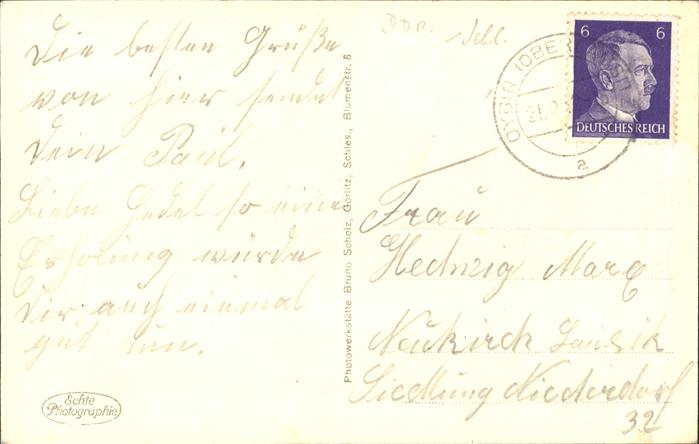 Die besten Grüße
von hier sendet
Dein Paul.
Liebe Hedel so eine
Erholung würde
Dir auch einmal
gut tun.
Echte
Photographie
Photowerkstätte Bruno Scholz, Görlitz, Schles., Blumenstr. 8
DDR.
OYBIN (OBE
21.
a
6 6
DEUTSCHES REICH
Frau
Hedwig Marx
Neukirch Lausik
Siedlung Niederdorf
32